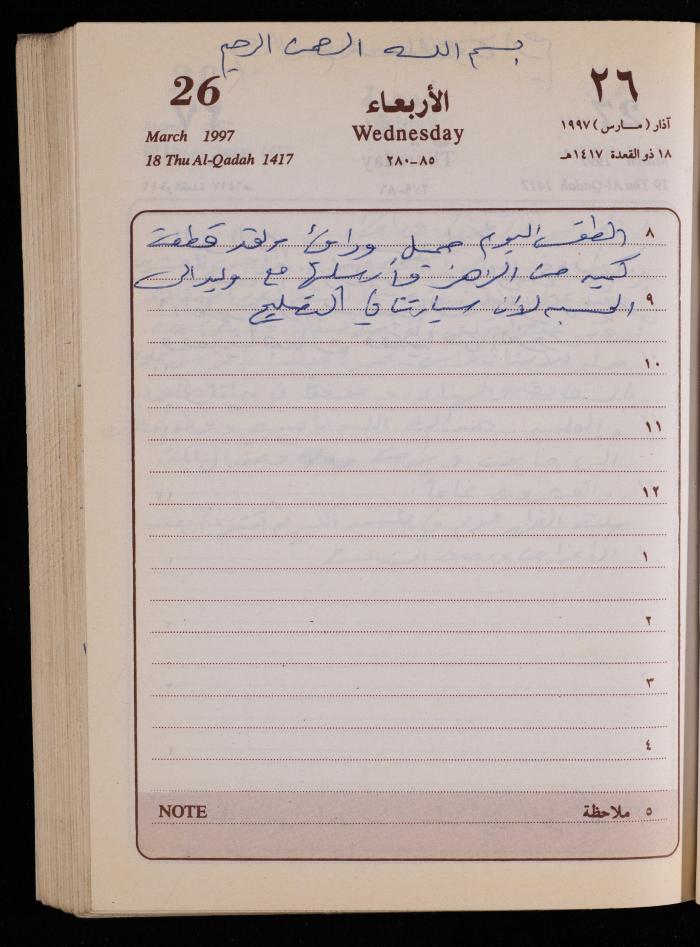 بسم الله الرحمن الرحيم
26
الأربعاء
٢٦
March 1997
Wednesday
آذار (مارس) ١٩٩٧
18 Thu Al-Qadah 1417
٢٨٠-٨٥
١٨ ذو القعدة ١٤١٧هـ
٨
الطقس اليوم جميل ودافئ ولقد قطفت
كمية من الزهر وأرسلتها مع وليد الى
٩
الحسبه لأن سيارتنا في التصليح
١٠
١١
١٢
١
٢
٣
٤
NOTE
٥ ملاحظة